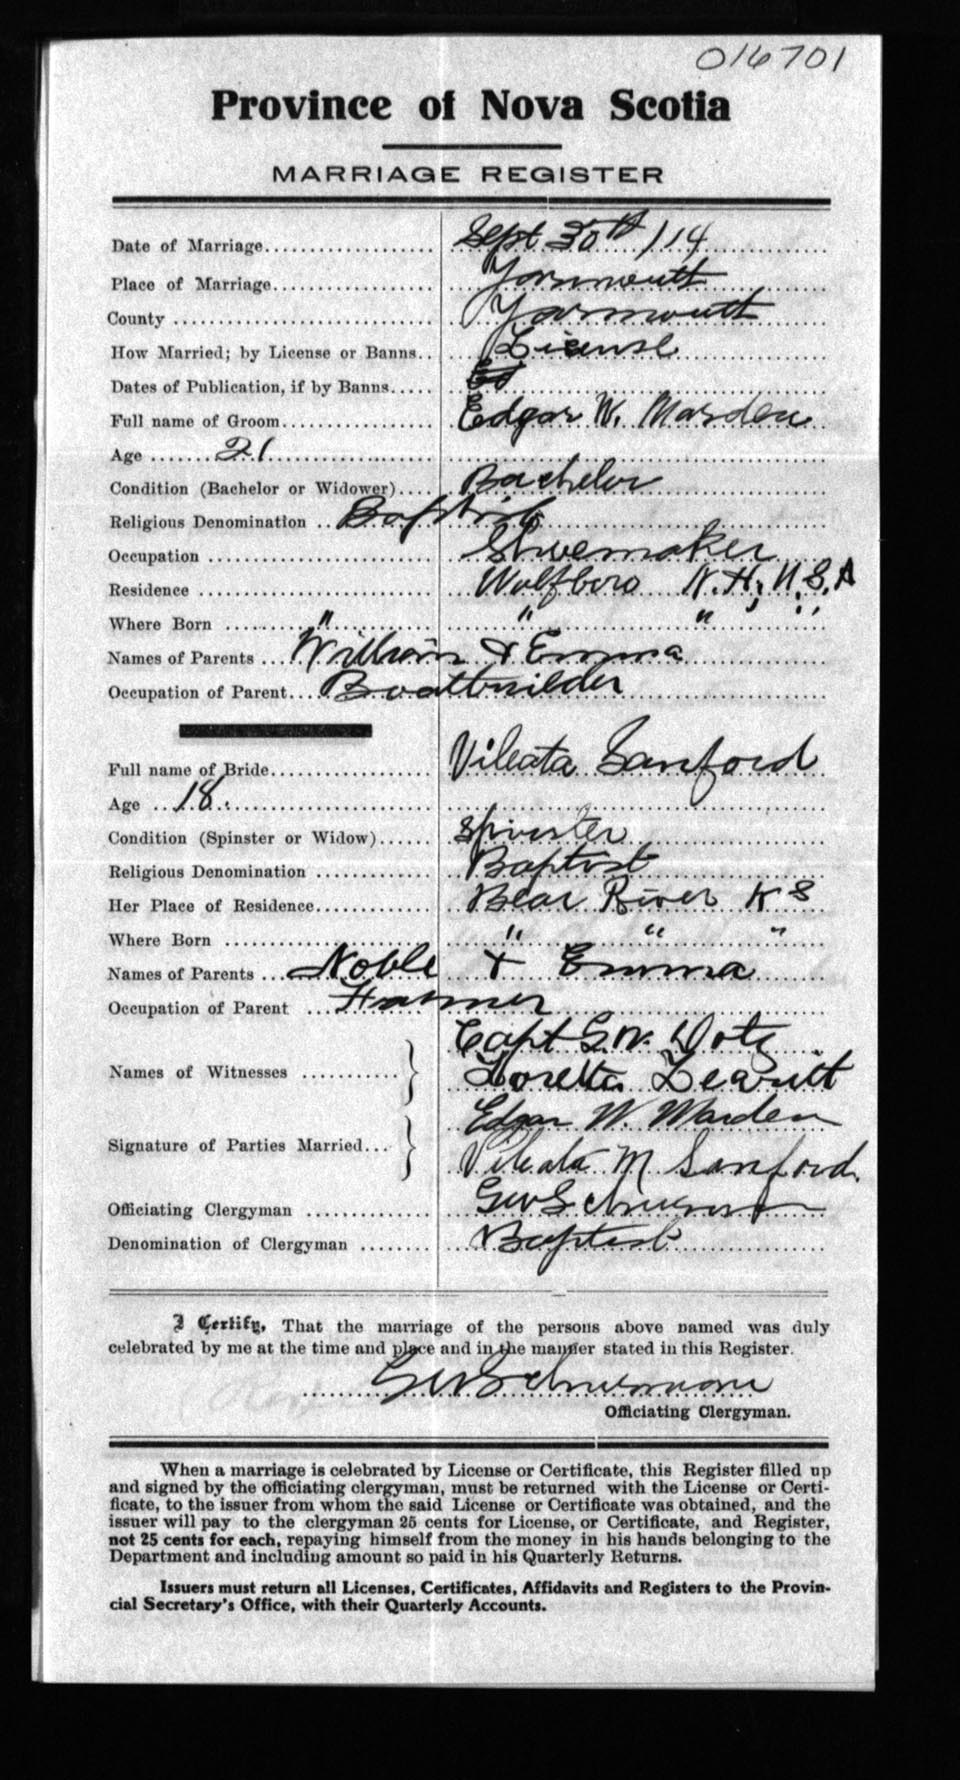 016701
Province of Nova Scotia
MARRIAGE REGISTER
Date of Marriage Sept 30th /14
Place of Marriage Yarmouth
County Yarmouth
How Married; by License or Banns License
Dates of Publication, if by Banns
Full name of Groom Edgar W. Marden
Age 21
Condition (Bachelor or Widower) Bachelor
Religious Denomination Baptist
Occupation Shoemaker
Residence Wolfboro N.H, U.S.A
Where Born " " " "
Names of Parents William & Emma
Occupation of Parent Boatbuilder
Full name of Bride Vileata Sanford
Age 18.
Condition (Spinster or Widow) Spinster
Religious Denomination Baptist
Her Place of Residence Bear River N S
Where Born " " "
Names of Parents Noble & Emma
Occupation of Parent Farmer
Capt G.W. Doty
Names of Witnesses
Loretta Leavitt
Edgar W. Marden
Signature of Parties Married
Vileata M Sanford.
Officiating Clergyman
Denomination of Clergyman Baptist
I Certify, That the marriage of the persons above named was duly
celebrated by me at the time and place and in the manner stated in this Register.
Officiating Clergyman.
When a marriage is celebrated by License or Certificate, this Register filled up
and signed by the officiating clergyman, must be returned with the License or Certi-
ficate, to the issuer from whom the said License or Certificate was obtained, and the
issuer will pay to the clergyman 25 cents for License, or Certificate, and Register,
not 25 cents for each, repaying himself from the money in his hands belonging to the
Department and including amount so paid in his Quarterly Returns.
Issuers must return all Licenses, Certificates, Affidavits and Registers to the Provin-
cial Secretary's Office, with their Quarterly Accounts.